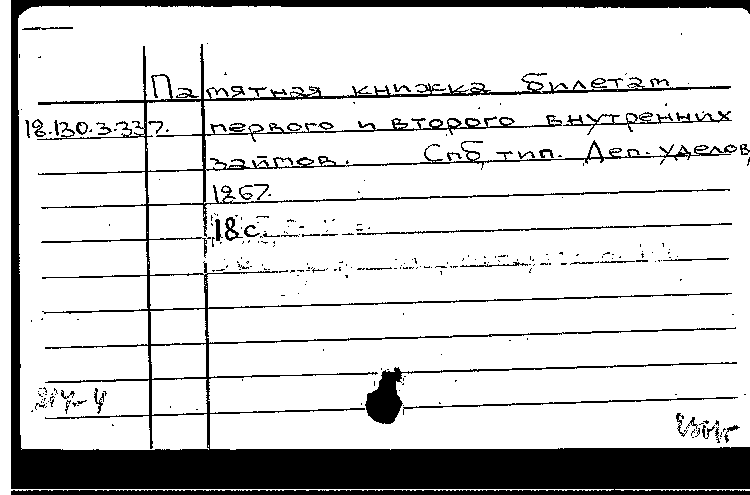 Памятная книжка билетам
18.130.3.337. первого и второго внутренних
займов. Спб, тип. Деп. уделов,
1867.
18 с.